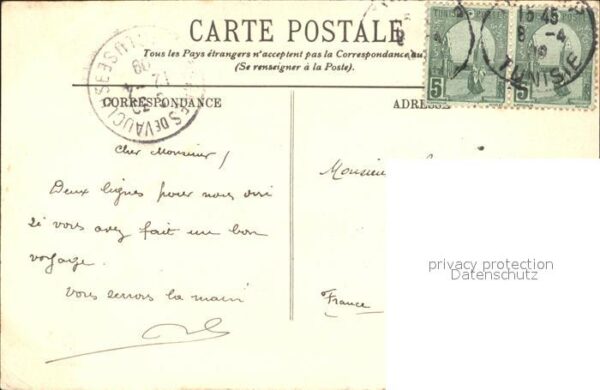 CARTE POSTALE
Tous les Pays étrangers n'acceptent pas la Correspondance au
(Se renseigner à la Poste).
TUNISIE POSTES
5
5
15 45
8 -4
TUNISIE
CORRESPONDANCE
ADRESSE
Cher Monsieur,
Deux lignes pour nous
si vous avez fait un bon
voyage.
Vous serrons la main
Monsieur
France
privacy protection
Datenschutz